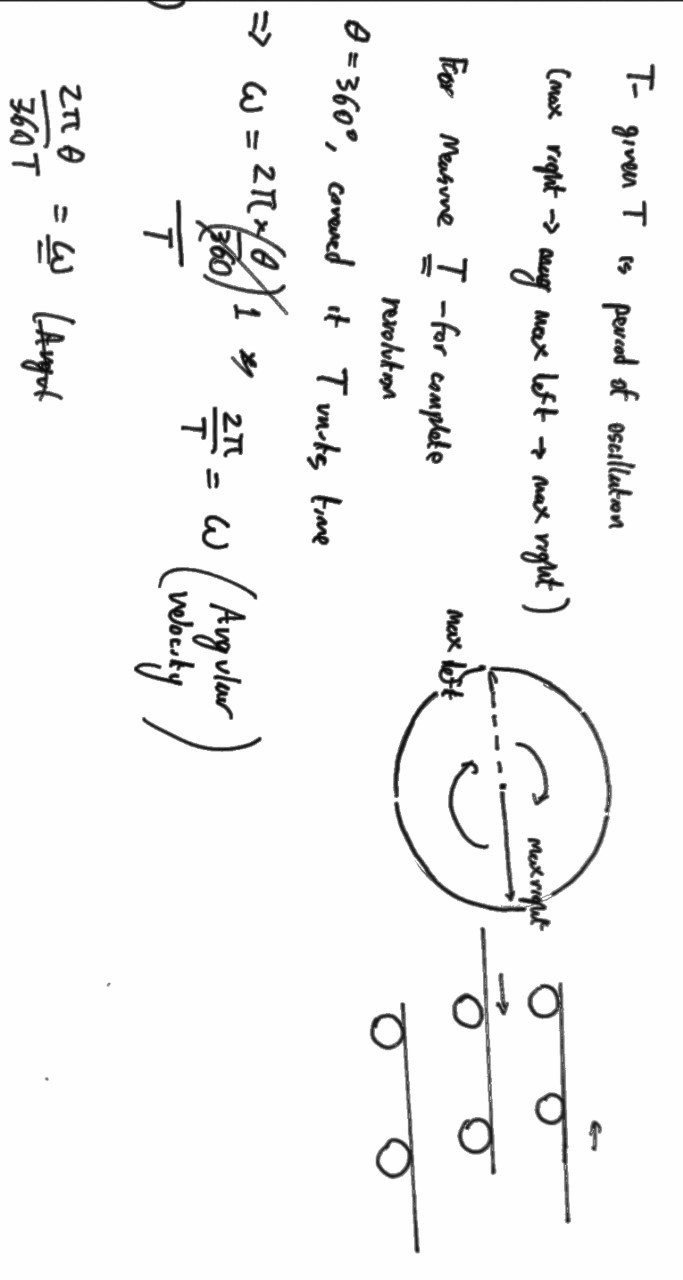 T- given T is period of oscillation
(max right → max left → max right)
For Measure T - for complete
revolution
θ = 360°, covered it T units time
⇒ ω = 2π × (θ/360) 1 ⇒ 2π/T = ω (Angular velocity)
T
2πθ/360T = ω (Angul
max left
max right